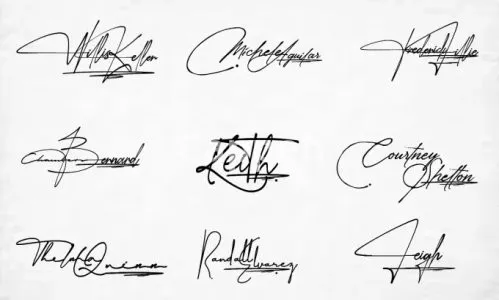 Willis Keller
Michele Aguilar
Frederick Willie
Bernard
Keith.
Courtney
Shelton
Quinn
Randall Alvarez
Leigh